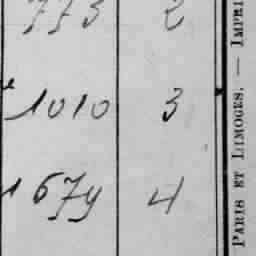 773 2
1010 3
1679 4
PARIS ET LIMOGES. — IMPRI